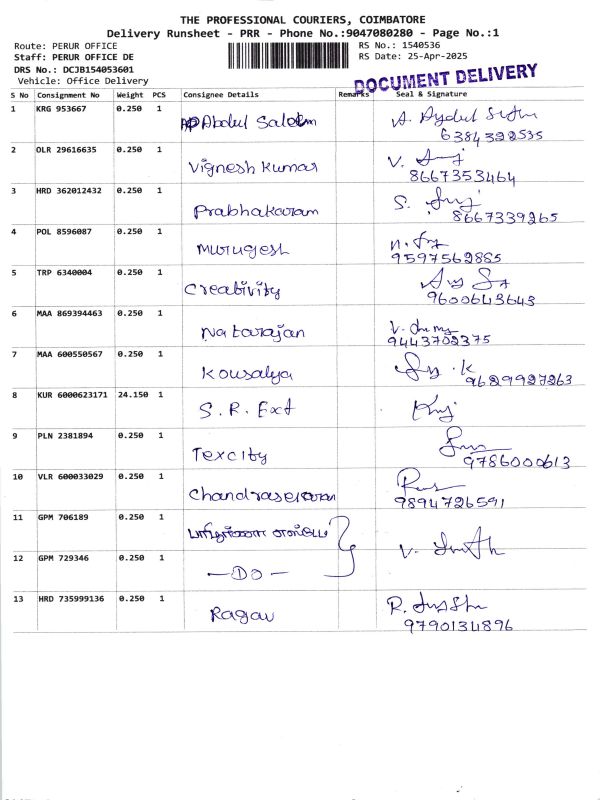 THE PROFESSIONAL COURIERS, COIMBATORE
Delivery Runsheet - PRR - Phone No.:9047080280 - Page No.:1
Route: PERUR OFFICE
RS No.: 1540536
Staff: PERUR OFFICE DE
RS Date: 25-Apr-2025
DRS No.: DCJB154053601
Vehicle: Office Delivery
DOCUMENT DELIVERY
S No Consignment No Weight PCS Consignee Details Remarks Seal & Signature
1 KRG 953667 0.250 1 Abdul Saleem A.
6384322535
2 OLR 29616635 0.250 1 Vignesh Kumar V.
8667353464
3 HRD 362012432 0.250 1 Prabhakaram S.
8667339265
4 POL 8596087 0.250 1 Murugesh
9597562885
5 TRP 6340004 0.250 1 Creativity
9600643643
6 MAA 869394463 0.250 1 Natarajan V.
9443702375
7 MAA 600550567 0.250 1 Kousalya K
9629927263
8 KUR 6000623171 24.150 1 S.R. Ext
9 PLN 2381894 0.250 1 Texcity
9786000613
10 VLR 600033029 0.250 1 Chandrasekaran
9894726591
11 GPM 706189 0.250 1
12 GPM 729346 0.250 1 —DO— V.
13 HRD 735999136 0.250 1 Ragav R.
9790134896